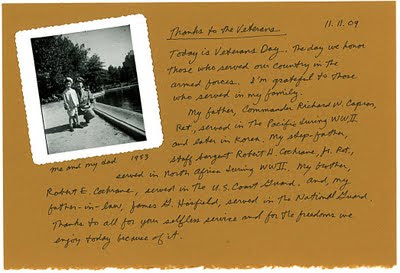 Thanks to the Veterans 11.11.09
Today is Veterans Day. The day we honor
those who served our country in the
armed forces. I'm grateful to those
who served in my family.
My father, Commander Richard W. Capron,
Ret, served in the Pacific during WWII
and later in Korea. My step-father,
Staff Sargent Robert H. Cochrane, Jr. Ret.,
me and my dad 1953
served in North Africa during WWII. My brother,
Robert E. Cochrane, served in the U.S. Coast Guard. And, my
father-in-law, James G. Hinfield, served in the National Guard.
Thanks to all for your selfless service and for the freedoms we
enjoy today because of it.